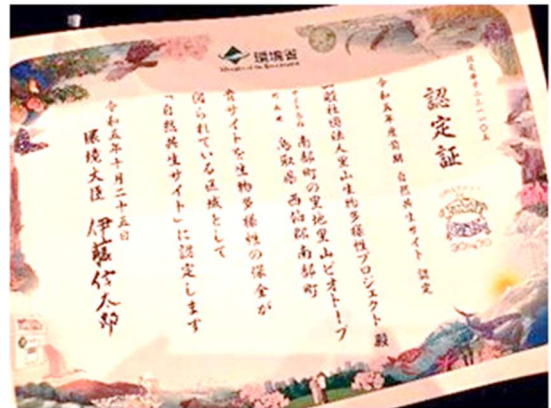 環境省
Ministry of the Environment
認定証
令和五年度前期 自然共生サイト 認定
一般社団法人里山生物多様性プロジェクト 殿
南部町の里地里山ビオトープ
鳥取県 西伯郡 南部町
貴サイトを生物多様性の保全が
図られている区域として
「自然共生サイト」に認定します
令和五年十月二十五日
環境大臣 伊藤信太郎